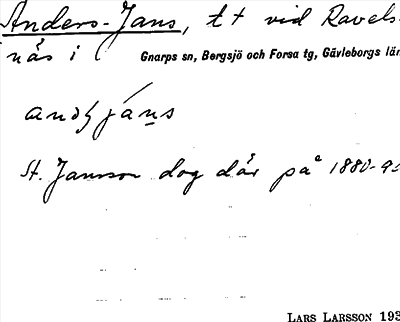 Anders-Jans, t t vid Ravels-
näs i Gnarps sn, Bergsjö och Forsa tg, Gävleborgs län
St. Jansson dog där på 1880-
LARS LARSSON 193